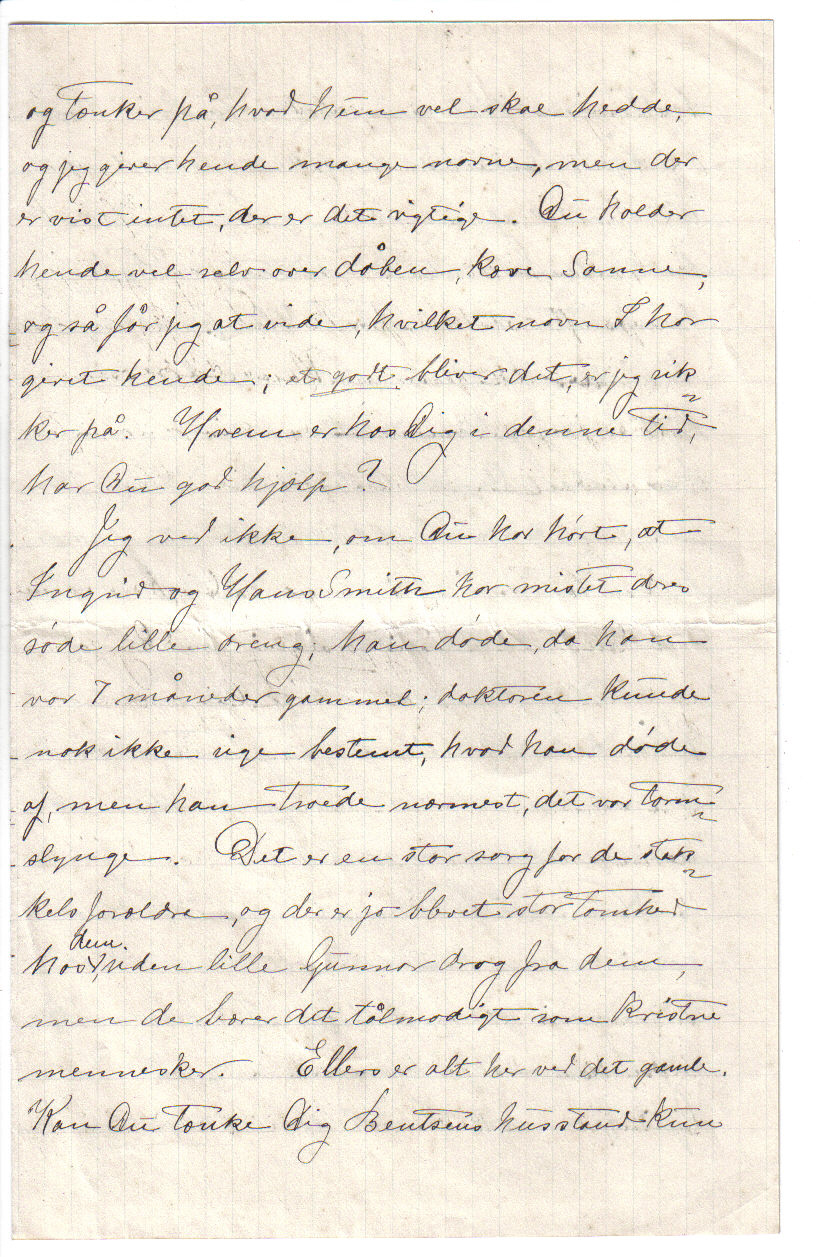 og tænker på, hvad hun vel skal hedde,
og jeg giver hende mange navne, men der
er vist intet, der er det rigtige. Du holder
hende vel selv over dåben, kære Sanne,
og så får jeg at vide, hvilket navn I har
givet hende; et godt bliver det, er jeg sik=
ker på. Hvem er hos Dig i denne tid,
har Du god hjælp?
Jeg ved ikke, om Du har hørt, at
Ingrid og Hans Smith har mistet deres
søde lille dreng; han døde, da han
var 7 måneder gammel; doktoren kunde
nok ikke sige bestemt, hvad han døde
af, men han troede nærmest, det var tarm=
slynge. Det er en stor sorg for de stak=
kels forældre, og der er jo blevet stor tomhed
hos dem, siden lille Gunnar drog fra dem,
men de bærer det tålmodigt som kristne
mennesker. Ellers er alt her ved det gamle.
Kan Du tænke Dig Bentsens husstand kun